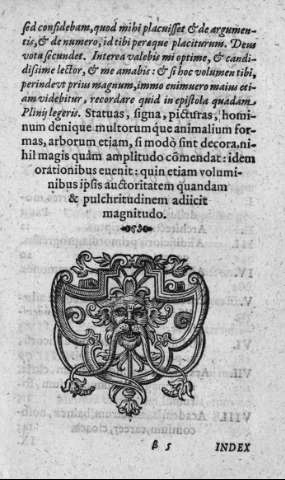 sed confidebam, quod mihi placuisset & de argumen-
tis, & de numero, id tibi peræque placiturum. Deus
vota secundet. Interea valebis mi optime, & candi-
dissime lector, & me amabis: & si hoc volumen tibi,
perinde vt prius magnum, immo enimuero maius eti-
am videbitur, recordare quid in epistola quadam
Plinij legeris. Statuas, signa, picturas, homi-
num denique multorumque animalium for-
mas, arborum etiam, si modò sint decora, ni-
hil magis quàm amplitudo cōmendat: idem
orationibus euenit: quin etiam volumi-
nibus ipsis auctoritatem quandam
& pulchritudinem adiicit
magnitudo.
β 5 INDEX